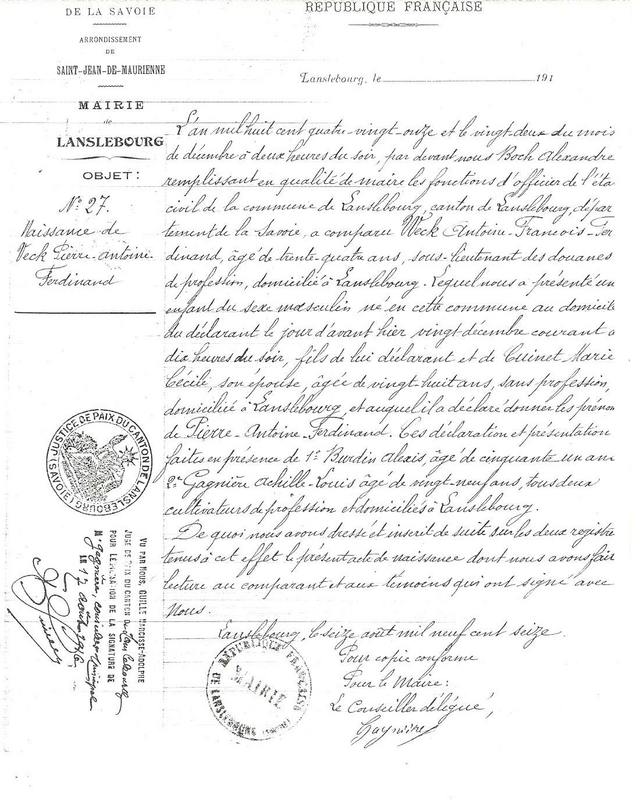 DE LA SAVOIE
ARRONDISSEMENT
DE
SAINT-JEAN-DE-MAURIENNE
MAIRIE
de
LANSLEBOURG
OBJET:
N° 27.
Naissance de
Veck Pierre-Antoine
Ferdinand
RÉPUBLIQUE FRANÇAISE
Lanslebourg, le 191
L'an mil huit cent quatre-vingt-onze et le vingt-deux du mois
de décembre à deux heures du soir, par devant nous Boch Alexandre
remplissant en qualité de maire les fonctions d'officier de l'éta
civil de la commune de Lanslebourg, canton de Lanslebourg, dépar
tement de la Savoie, a comparu Veck Antoine-François-Fer
dinand, âgé de trente-quatre ans, sous-lieutenant des douanes
de profession, domicilié à Lanslebourg. Lequel nous a présenté un
enfant du sexe masculin né en cette commune au domicile
du déclarant le jour d'avant hier vingt décembre courant à
dix heures du soir, fils de lui déclarant et de Cuinet Marie
Cécile, son épouse, âgée de vingt huit ans, sans profession,
domiciliée à Lanslebourg et auquel il a déclaré donner les prénom
de Pierre-Antoine-Ferdinand. Ces déclaration et présentation
faites en présence de 1° Burdin Alexis, âgé de cinquante un ans
2° Gagnière Achille-Louis âgé de vingt-neuf ans, tous deux
cultivateurs de profession et domiciliés à Lanslebourg.
De quoi nous avons dressé et inscrit de suite sur les deux registre
tenus à cet effet le présent acte de naissance dont nous avons fait
lecture au comparant et aux témoins qui ont signé avec
Nous.
Lanslebourg, le seize août mil neuf cent seize.
Pour copie conforme
Pour le Maire:
Le Conseiller délégué,
Gagnière
JUSTICE DE PAIX DU CANTON DE LANSLEBOURG (SAVOIE)
VU PAR NOUS, GUILLE NARCISSE-ADOLPHE
JUGE DE PAIX DU CANTON de Lanslebourg
POUR LÉGALISATION DE LA SIGNATURE DE
M. Gagnière, conseiller municipal
LE août 1916
RÉPUBLIQUE FRANÇAISE
MAIRIE
DE LANSLEBOURG (Savoie)